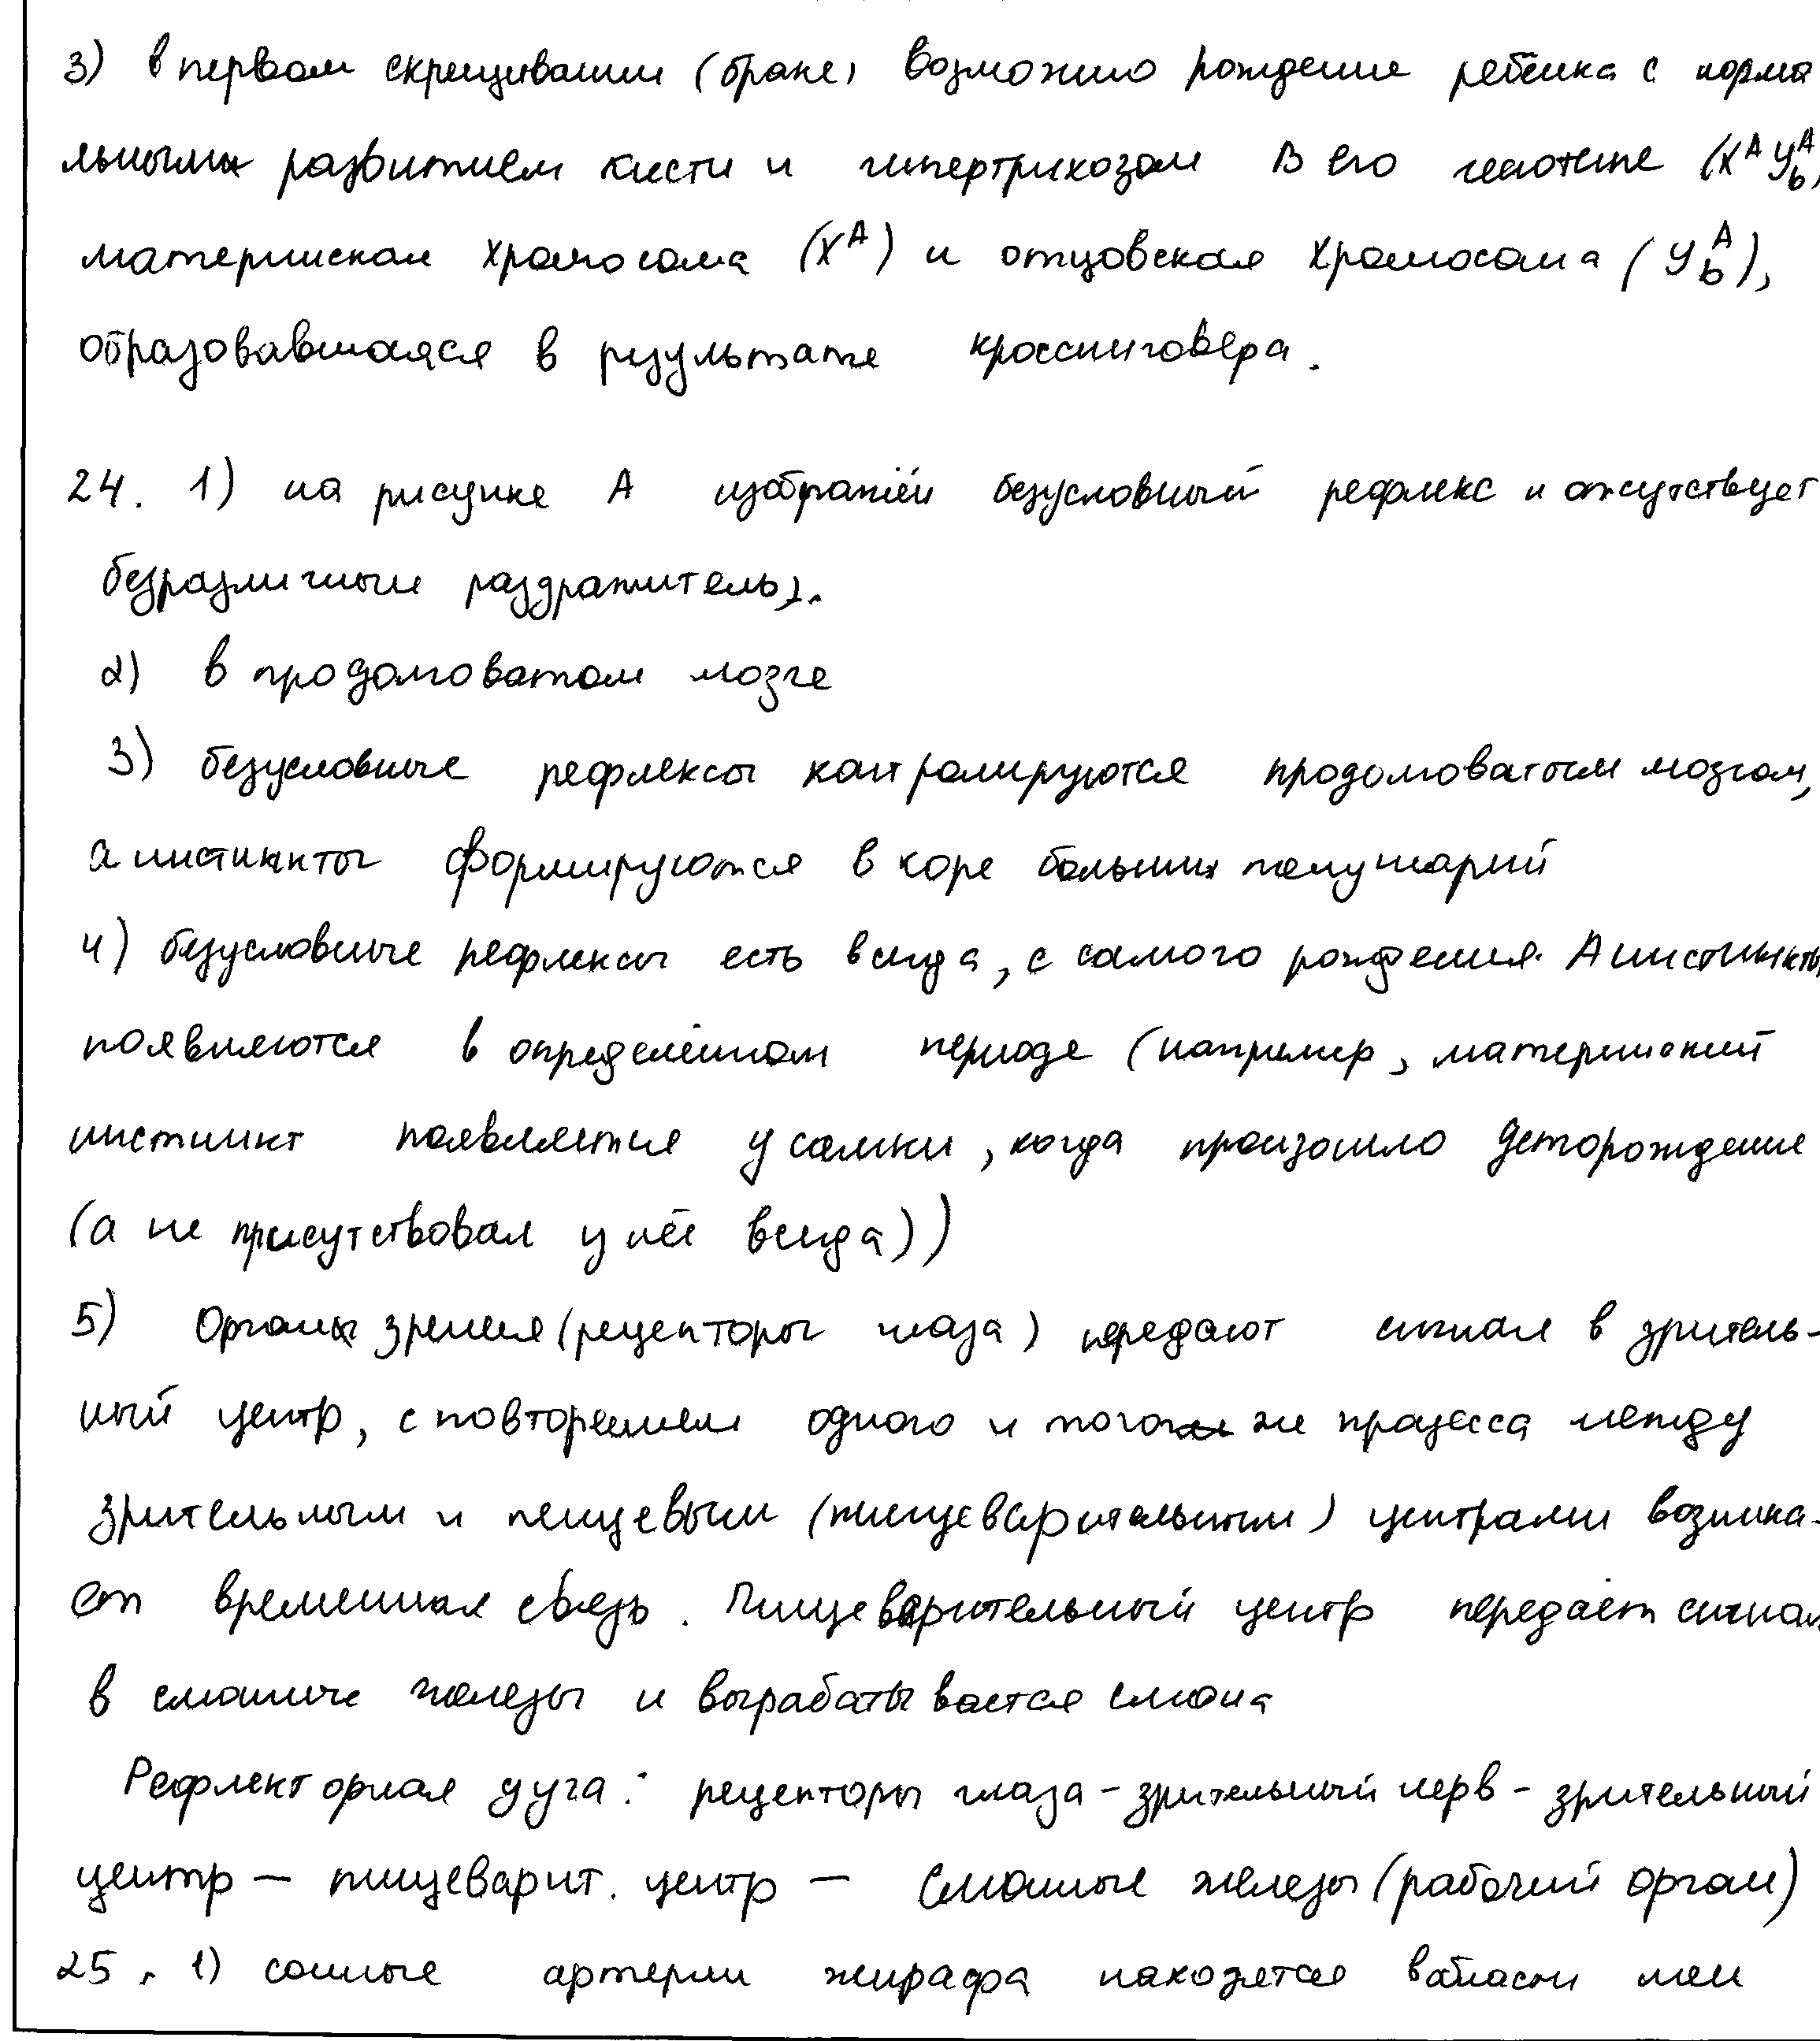 3) в первом скрещивании (браке) возможно рождение ребёнка с норма
льным развитием кисти и гипертрихозом В его генотипе (X^A Y^A_b)
материнская хромосома (X^A) и отцовская хромосома (Y^A_b),
образовавшаяся в результате кроссинговера.
24. 1) на рисунке А изображён безусловный рефлекс и отсутствует
безразличный раздражитель).
2) в продолговатом мозге
3) безусловные рефлексы контролируются продолговатым мозгом,
а инстинкты формируются в коре больших полушарий
4) безусловные рефлексы есть всегда, с самого рождения. А инстинкты
появляются в определённом периоде (например, материнский
инстинкт появляется у самки, когда произошло деторождение
(а не присутствовал у неё всегда))
5) Органы зрения (рецепторы глаза) передают сигнал в зритель-
ный центр, с повторением одного и того же процесса между
зрительным и пищевым (пищеварительным) центрами возника-
ет временная связь. Пищеварительный центр передаёт сигнал
в слюнные железы и вырабатывается слюна
Рефлекторная дуга: рецепторы глаза - зрительный нерв - зрительный
центр — пищеварит. центр — слюнные железы (рабочий орган)
25. 1) сонные артерии жирафа находятся в области шеи